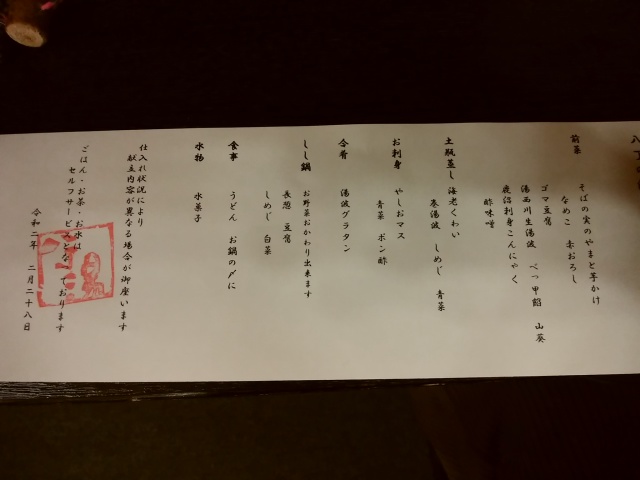 八丁
前菜
そばの実のやまと芋かけ
なめこ 赤おろし
ゴマ豆腐
湯西川生湯波 べっ甲餡 山葵
鹿沼刺身こんにゃく
酢味噌
土瓶蒸し 海老くわい
巻湯波 しめじ 青菜
お刺身 やしおマス
青菜 ポン酢
合肴 湯波グラタン
しし鍋 お野菜おかわり出来ます
長葱 豆腐
しめじ 白菜
食事 うどん お鍋の〆に
水物 水菓子
仕入れ状況により
献立内容が異なる場合が御座います
ごはん・お茶・お水は
セルフサービスとなっております
令和二年 二月二十八日